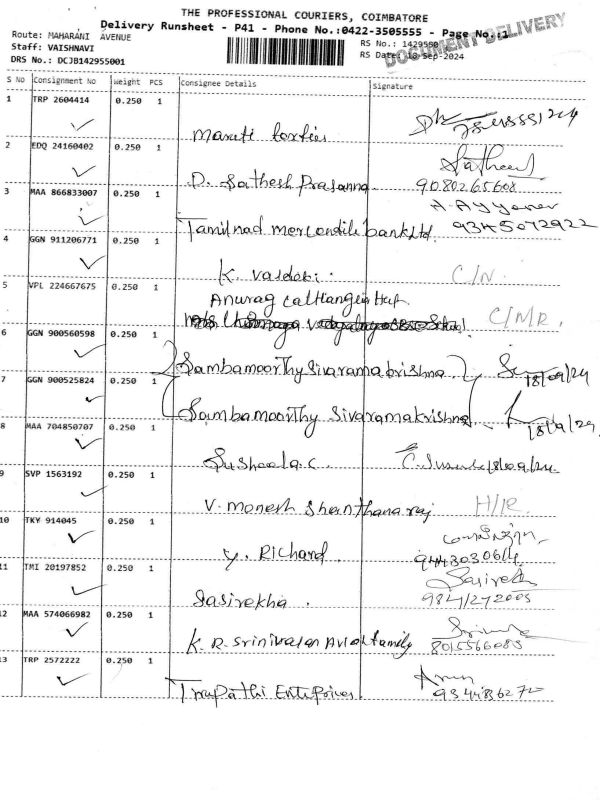 THE PROFESSIONAL COURIERS, COIMBATORE
Delivery Runsheet - P41 - Phone No.:0422-3505555 - Page No.:1
DOCUMENT DELIVERY
Route: MAHARANI AVENUE
Staff: VAISHNAVI
DRS No.: DCJB142955001
RS No.: 1429550
RS Date: 18-Sep-2024
S No Consignment No Weight PCS Consignee Details Signature
1 TRP 2604414 0.250 1
Maruti
2 EDQ 24160402 0.250 1
D. Sathesh Prasanna
Sathees
9080265608
3 MAA 866833007 0.250 1
Tamilnad mercandile bank Ltd.
A. Ayyaner
9345072922
4 GGN 911206771 0.250 1
K. Vasdevi
C/N.
5 VPL 224667675 0.250 1
Anurag
C/MR.
6 GGN 900560598 0.250 1
Sambamoorthy Sivaramakrishna
18/09/24
7 GGN 900525824 0.250 1
Sambamoorthy Sivaramakrishna
18/9/24
8 MAA 704850707 0.250 1
Susheela.C
9 SVP 1563192 0.250 1
V. Monesh Shanthana raj
H/R.
10 TKY 914045 0.250 1
Y. Richard
11 TMI 20197852 0.250 1
Sasirekha.
Sasirekha
12 MAA 574066982 0.250 1
K.R. Srinivasan family
8015566085
13 TRP 2572222 0.250 1
Tirupathi Enteprises